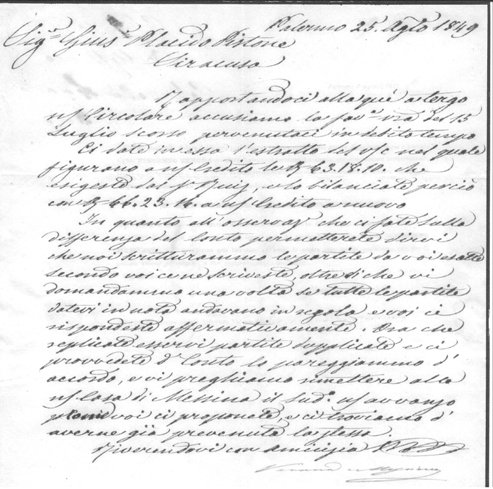 Palermo 25. Agto 1849
Sigr Gius. Placido Pistone
Siracusa
Rapportandoci alla quì a tergo
ns/ Circolare accusiamo la favta vra del 15
Luglio scorso pervenutaci in debito tempo
Ci date in essa l'estratto del v/c nel quale
figurano a ns/ Credito le 63.18.10. che
esigeste dal Sr Ruiz, e lo bilanciate perciò
con 66.23.16 a ns/ Credito a nuovo
In quanto all' osservaz. che ci fate sulla
differenza del Conto permetterete dirvi
che noi scritturammo le partite da voi esatte
secondo voi ce ne scriveste, oltre di che vi
domandammo una volta se tutte le partite
datevi in nota andavano in regola e voi ci
rispondeste affermativamente. Ora che
replicate esservi partite duplicate e ci
provvedete d' Conto lo pareggiammo d'
accordo, e vi preghiamo rimettere alla
ns/ Casa di Messina il sudo ns/ avvanzo
voi ci proponete, e ci troviamo d'
averne già prevenuta la stessa.
Riverendovi con amicizia